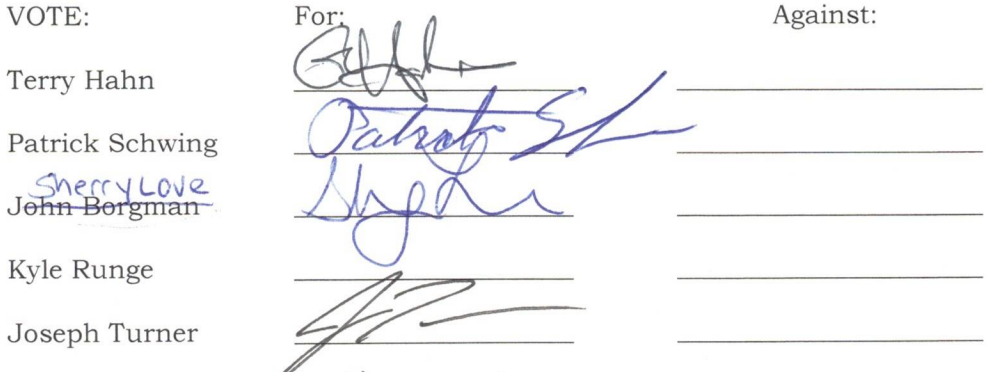 VOTE: For: Against:
Terry Hahn
Patrick Schwing
Sherry Love
John Borgman
Kyle Runge
Joseph Turner